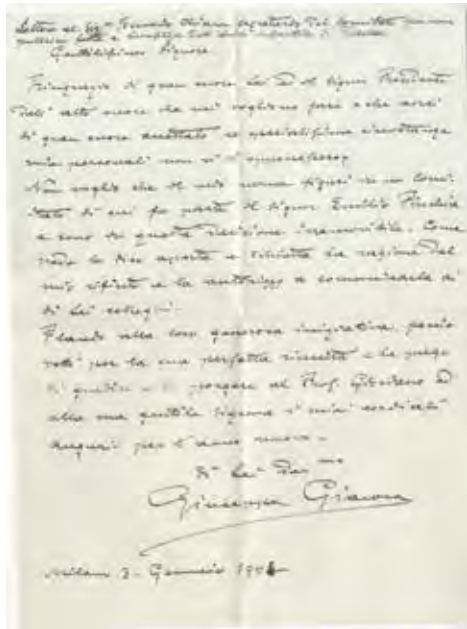 Lettera al Sig.r
Gentilissimo Signore
Ringrazio di gran cuore Lei ed il Signor Presidente
dell' alto onore che mi vogliono fare e che avrei
di gran cuore accettato se specialissime circostanze
mie personali non vi si opponessero.
Non voglio che il mio nome figuri in un Comi-
tato di cui fa parte il Signor Emilio
e sono in questa decisione irremovibile. Come
vede le dico aperta e schietta la ragione del
mio rifiuto e la autorizzo a comunicarla ai
di Lei colleghi.
Plaudo alla loro generosa iniziativa, faccio
voti per la sua perfetta riuscita e la prego
di gradire e di porgere al Prof. Giordano ed
alla sua gentile Signora i miei cordiali
auguri per il nuovo anno.
di Lei Dev.mo
Giuseppe Giacosa
Milano 3 Gennaio